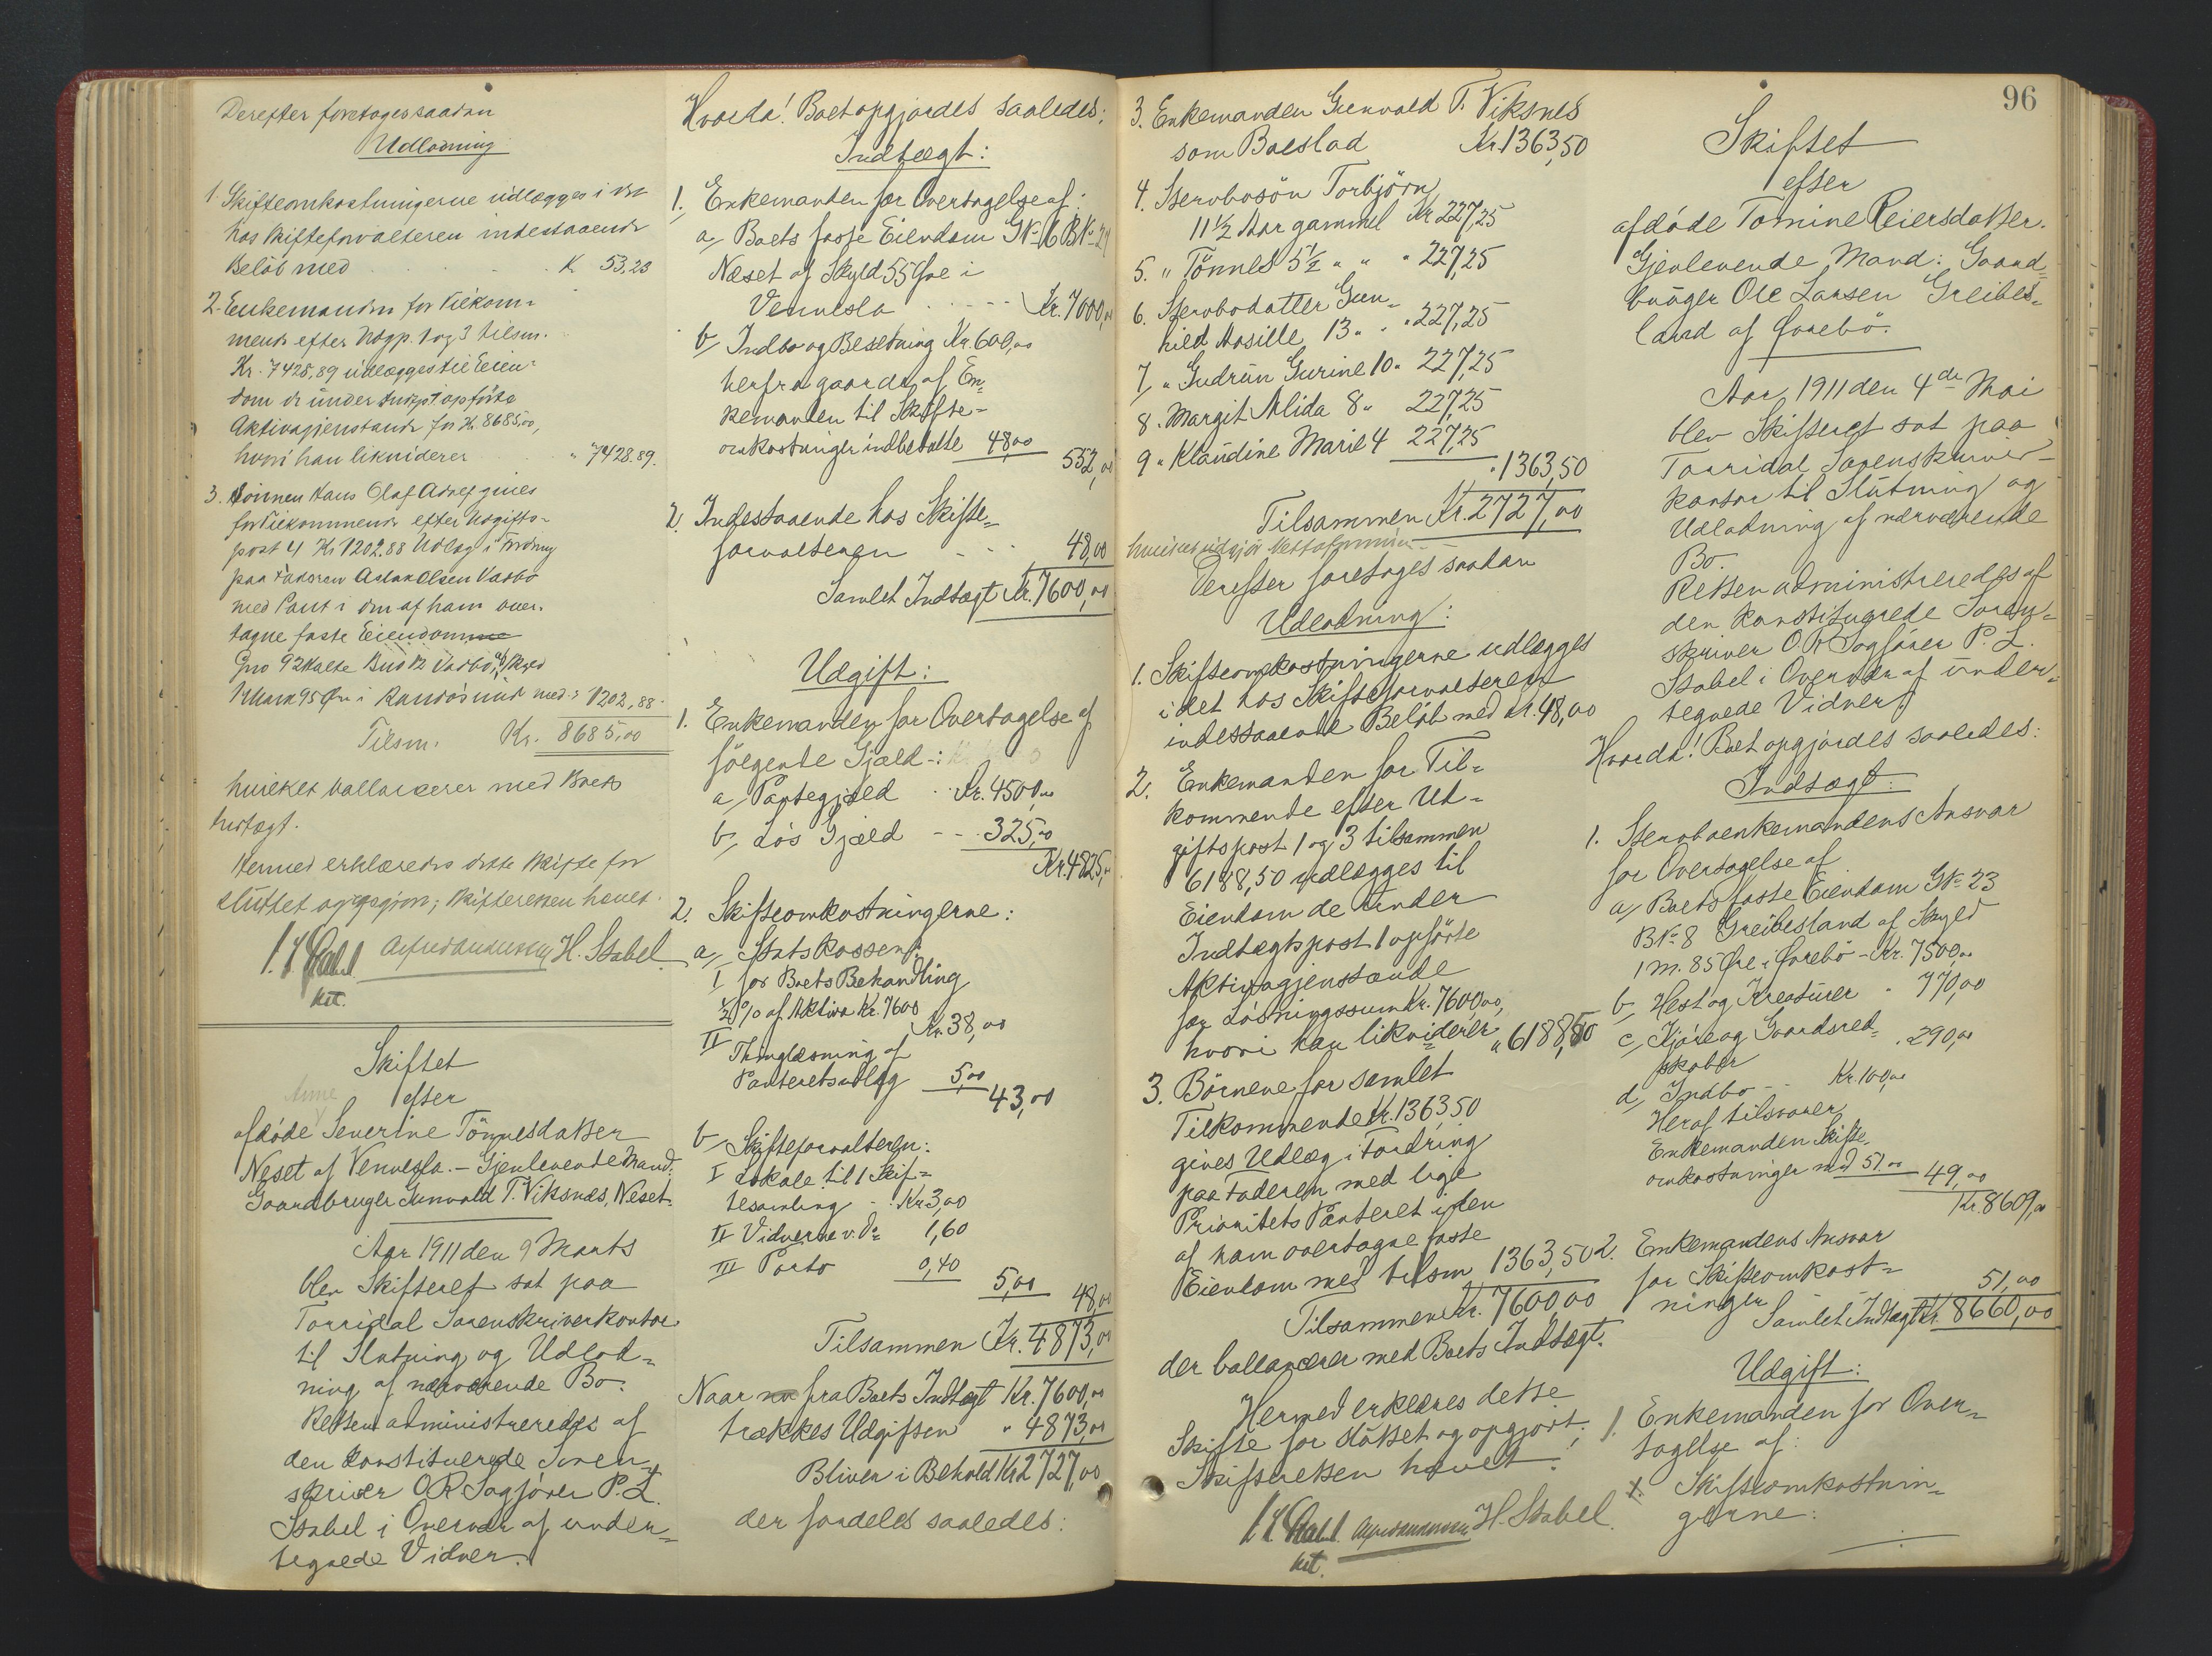 Derefter foretoges saadan
Udlodning
1. Skifteomkostningerne udlægges i det
hos Skifteforvalteren indestaaende
Beløb med K. 53,23
2. Enkemanden for Tilkom-
mende efter Udgp. 1 og 3 tilsm.
Kr. 7428,89 udlægges til Eien-
dom de under Indtpt 1 opførte
Aktivagjenstande for Kr. 8685,00,
hvori han likviderer " 7428.89.
3. Sønnen Hans Olaf Adolf gives
for Tilkommende efter Udgifts-
post 4 Kr 1202.88 Udlæg i Fordring
paa Faderen Olsen Vasbø
med Pant i den af ham over-
tagne faste Eiendom
Gno 92 kalte Vasbø, af Skyld
1 Mark 95 Øre i Randøsund med " 1202,88.
Tilsm. Kr. 8685,00
hvilket ballancerer med Boets
Indtægt.
Hermed erklæredes dette Skifte for
sluttet og opgjort; Skifteretten hævet.
H. Stabel
kst.
Skiftet
Anne
efter
afdøde Severine Tønnesdatter
Neset af Vennesla. - Gjenlevende Mand:
Gaardbruger Gunvald T. Viksnes, Neset.
Aar 1911 den 9 Marts
blev Skifteret sat paa
Torridal Sorenskriverkontor
til Slutning og Udlod-
ning af nærværende Bo.
Retten administreredes af
den konstituerede Soren-
skriver O.R.Sagfører P. L.
Stabel i Overvær af under-
tegnede Vidner.
Hvorda! Boet opgjordes saaledes:
Indtægt:
1. Enkemanden for Overtagelse af:
a, Boets faste Eiendom GNo 16 BNo 24
Næset af Skyld 55 Øre i
Vennesla Kr. 7000,00
b, Indbo og Besetning Kr. 600,00
herfra gaar de af En-
kemanden til Skifte-
omkostninger indbetalte 48,00 552,00
2. Indestaaende hos Skifte-
forvalteren 48,00
Samlet Indtægt Kr. 7600,00
Udgift:
1. Enkemanden for Overtagelse af
følgende Gjæld:
a, Pantegjæld Kr. 4500,00
b, Løs Gjæld 325,00
Kr. 4825,00
2. Skifteomkostningerne:
a, Statskassen:
I for Boets Behandling
½ % af Aktiva Kr. 7600
Kr. 38,00
II Thinglæsning af
Panteretsudlæg 5,00
43,00
b Skifteforvalteren:
I Lokale til 1 Skif-
tesamling Kr 3,00
II Vidnerne v. Do 1,60
III Porto 0,40
5,00 48,00
Tilsammen Kr. 4873,00
Naar fra Boets Indtægt Kr. 7600,00
trækkes Udgiften " 4873,00
Bliver i Behold Kr 2727,00
der fordeles saaledes:
96
3. Enkemanden Gunvald T. Viksnes
som Boeslod Kr. 1363,50
4. Stervbosøn Torbjørn
11½ Aar gammel Kr 227,25
5. " Tønnes 5½ " " " 227,25
6. Stervbodatter Gun-
hild Aasille 13 " " " 227,25
7, " Gudrun Gurine 10 " 227,25
8. Margit Alida 8 " 227,25
9 " Klaudine Marie 4 227,25
" 1363,50
Tilsammen Kr. 2727,00
hvilket udgjør Nettoformuen
Derefter foretoges saadan
Udlodning:
1. Skifteomkostningerne udlægges
i det hos Skifteforvalteren
indestaaende Beløb med Kr. 48,00
2. Enkemanden for Til-
kommende efter Ud-
giftspost 1 og 3 tilsammen
6188,50 udlægges til
Eiendom de under
Indtægtspost 1 opførte
Aktivagjenstande
for Løsningssum Kr. 7600,00,
hvori han likviderer " 6188,50
3. Børnene for samlet
Tilkommende Kr. 1363,50
gives Udlæg i Fordring
paa Faderen med lige
Prioritets Panteret i den
af ham overtagne faste
Eiendom med tilsm 1363,50
Tilsammen Kr. 7600,00
der ballancerer med Boets Indtægt.
Hermed erklæres dette
Skifte for sluttet og opgjort;
Skifteretten hævet.
H. Stabel.
kst.
Skiftet
efter
afdøde Tomine Reiersdatter.
Gjenlevende Mand: Gaard-
bruger Ole Larsen Greibes-
land af Øvrebø.
Aar 1911 den 4de Mai
blev Skifteret sat paa
Torridal Sorenskriver-
kontor til Slutning og
Udlodning af nærværende
Bo.
Retten administreredes af
den konstituerede Soren-
skriver O R Sagfører P. L.
Stabel i Overvær af under-
tegnede Vidner.
Hvorda! Boet opgjordes saaledes:
Indtægt:
1. Stervboenkemandens Ansvar
for Overtagelse af
a, Boets faste Eiendom GNo 23
BNo 8 Greibesland af Skyld
1 m. 85 Øre i Øvrebø - Kr. 7500,00
b, Hest og Kreaturer " 770,00
c, Kjøre og Gaardsred-
skaber " 290,00
d, Indbo Kr. 100,00
Heraf tilsvarer
Enkemanden Skifte-
omkostninger med 51.00 49,00
Kr. 8609,00
2. Enkemandens Ansvar
for Skifteomkost-
ninger 51,00
Samlet Indtægt Kr. 8660,00
Udgift:
1. Enkemanden for Over-
tagelse af:
Skifteomkostnin-
gerne: